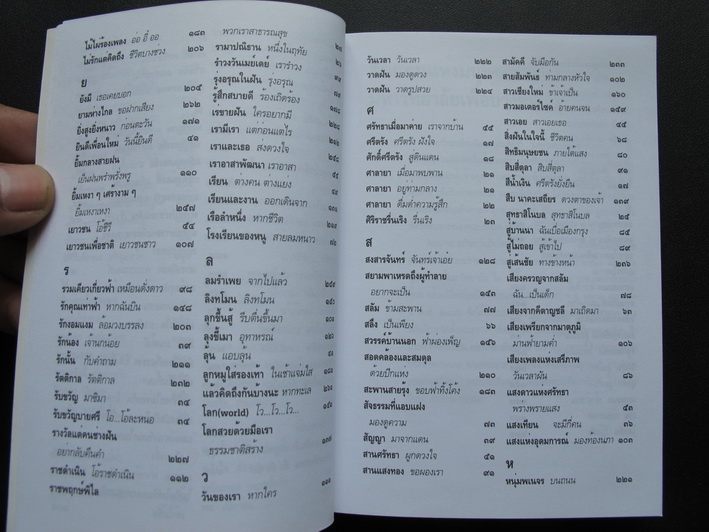 ไม่ไผ่ร้องเพลง อ่อ อี๋ ออ ๑๘๓
ไม่รักแต่คิดถึง ชีวิตบางช่วง ๒๐๖
ย
ยังมี เธอเคยบอก ๒๐๕
ยามห่างไกล ขอฝากเสียง ๒๖๒
ยิ่งสูงยิ่งหนาว ก่อนตะวัน ๑๗๑
ยินดีเพื่อนใหม่ วันนี้ยินดี ๔๑
ยิ้มกลางสายฝน
เย็นฝนพรำพรั่งพรู ๑๑๐
ยิ้มเหงา ๆ เศร้างาม ๆ
ยิ้มเหงาเหงา ๒๔๗
เยาวชน โอ้ชีวี ๔๔
เยาวชนเพื่อชาติ เยาวชนชาว ๑๐๗
ร
รวมเดียวเกี่ยวฟ้า เหมือนดั่งดาว ๙๘
รักคุณเท่าฟ้า หากฉันบิน ๑๔๘
รักงอมแงม ล้อมวงบรรลง ๒๐๓
รักน้อง เจ้านกน้อย ๓๙
รักนั้น กับคำถาม ๑๑๑
รัตติกาล รัตติกาล ๒๓๒
รับขวัญ มาซิมา ๓๔
รับขวัญบายศรี โอ...โอ้ละหนอ ๓๔
รางวัลแด่คนช่างฝัน
อย่ากลับคืนคำ ๒๒๗
ราชดำเนิน โอ้ราชดำเนิน ๑๑๒
ราชพฤกษ์พิไล
พวกเราสาธารณสุข
รามาปณิธาน หนึ่งในฤทัย
รำวงวันเมย์เดย์ เรารำวง
รุ่งอรุณในฝัน รุ่งอรุณ
รู้สึกสบายดี ร้องเถิดร้อง
เรขายฝัน ใครอยากมี
เรามีเรา แต่ก่อนแต่ไร
เราและเธอ ส่งดวงใจ
เราอาสาพัฒนา เราอาสา
เรียน ต่างคน ต่างแยง
เรียนและงาน ออกเดินจาก
เรือลำหนึ่ง หากชีวิต
โรงเรียนของหนู สายลมหนาว
ล
ลมรำเพย จากไปแล้ว
ลิงทโมน ลิงทโมน
ลุกขึ้นสู้ รีบตื่นขึ้นมา
ลุงขี้เมา อุทาหรณ์
ลุน แอบลุ้น
ลูกหมูใส่รองเท้า ในเช้าแจ่มใส
แล้วคิดถึงกันบ้างนะ หากทะเล
โลก(world) โว...โว...โว...
โลกสวยด้วยมือเรา
ธรรมชาติสร้าง
ว
วันของเรา หากใคร
วันเวลา วันเวลา ๒๒๒
วาดฝัน มองดูดวง ๒๒๓
วาดฝัน วาดรูปสวย ๒๒๔
ศ
ศรัทธาเมื่อมาค่าย เราจากบ้าน ๔๕
ศรีตรัง ศรีตรัง ฝังใจ ๑๗
ศักดิ์ศรีตรัง สู่ดินแดน ๑๘
ศาลายา เมื่อมาพบพาน ๒๐
ศาลายา อยู่ท่ามกลาง ๒๑
ศาลายา ดื่มด่ำความรู้สึก ๒๒
ศิริราชรื่นเริง รื่นเริง ๒๓
ส
สงสารจันทร์ จันทร์เจ้าเอ๋ย ๑๒๘
สยามพาเหรดถึงผู้ทำลาย
อยากจะเป็น ๑๔๓
สลัม ข้ามสะพาน ๗๗
สลึง เป็นเพียง ๖๖
สวรรค์บ้านนอก ฟ้าผ่องเพ็ญ ๑๔๖
สอดคล้องและสมดุล
ด้วยปีกแห่ง ๒๑๐
สะพานสายรุ้ง ขอบฟ้าทิ้งโค้ง ๑๘๓
สัจธรรมที่แอบแฝง
มองดูความ ๗๓
สัญญา มาจากแดน ๙๓
สานศรัทธา ผูกดวงใจ ๔๑
สานแสงทอง ขอผองเรา ๙๑
สามัคคี จับมือกัน ๒๓๓
สายสัมพันธ์ ท่ามกลางหัวใจ ๑๐๒
สาวเชียงใหม่ ข้าเจ้าเป็น ๑๖๐
สาวมอเตอร์ไซค์ อ้ายคนจน ๑๔๙
สาวเอย สาวเอยเธอ ๔๕
สิ่งฝันในใจนี้ ชีวิตคน ๖๘
สิทธิมนุษยชน ภายใต้แสง ๘๐
สิบสี่ตุลา สิบสี่ตุลา ๙๑
สีน้ำเงิน ศรีตรังยั่งยืน ๑๗
สืบ นาคะเสถียร ดวงตาของเจ้า ๑๑๓
สุทธาสิโนบล สุทธาสิโนบล ๒๔
สู่บ้านนา ฉันเบื่อเมืองกรุง ๘๕
สู้ไม่ถอย สู้เข้าไป ๘๙
สู่เส้นชัย ทางข้างหน้า ๒๓๖
เสียงครวญจากสลัม
ฉัน...เป็นเด็ก ๗๘
เสียงจากคีตาญชลี มาเถิดมา ๖๓
เสียงเพรียกจากมาตุภูมิ
ม่านฟ้ายามค่ำ ๑๐๖
เสียงเพลงแห่งเสรีภาพ
วันเวลาผัน ๘๖
แสงดาวแห่งศรัทธา
พร่างพรายแสง ๕๓
แสงเทียน จะมีกี่คน ๓๖
แสงแห่งอุดมการณ์ มองท้องนภา ๑๐๓
ห
หนุ่มพเนจร บนถนน ๒๒๑